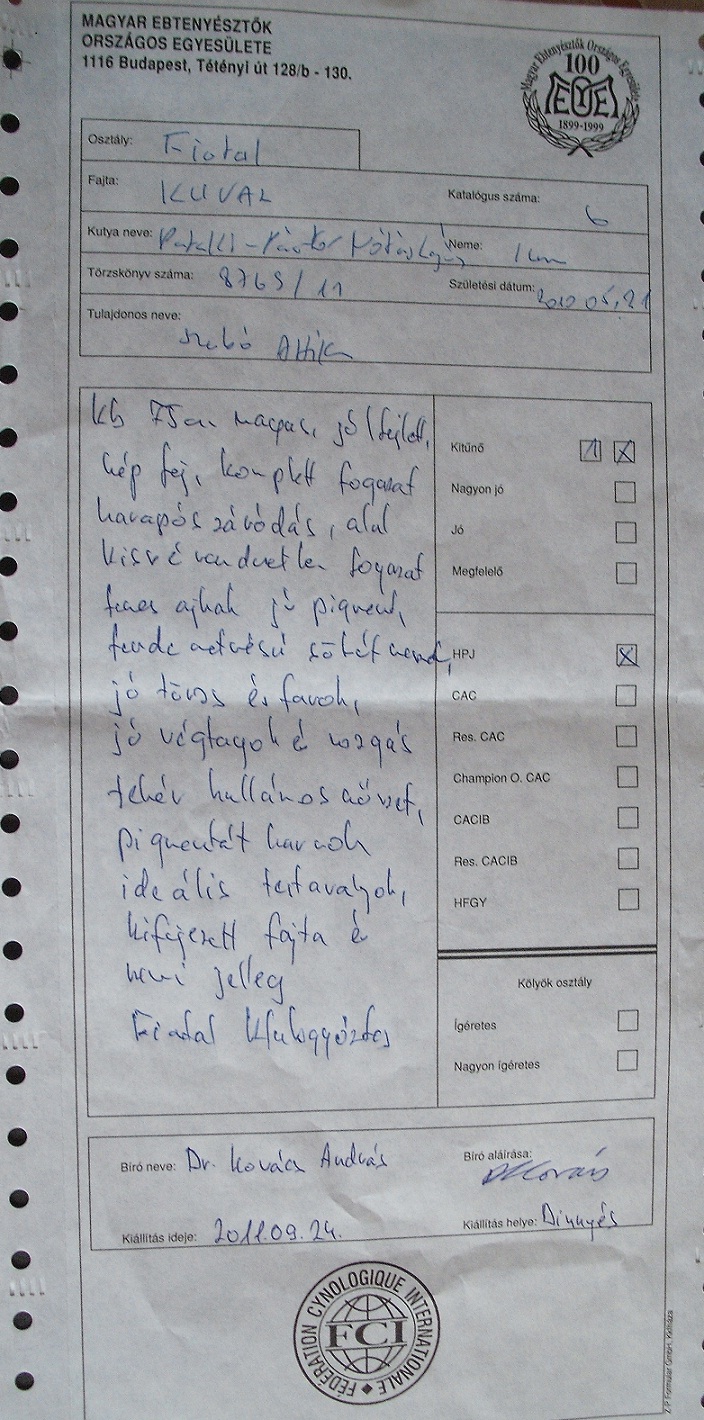 MAGYAR EBTENYÉSZTŐK
ORSZÁGOS EGYESÜLETE
1116 Budapest, Tétényi út 128/b - 130.
Magyar Ebtenyésztők Országos Egyesülete
100
MEOE
1899-1999
Osztály: Fiatal
Fajta: KUVAZ
Katalógus száma: 6
Kutya neve:
Neme: kan
Törzskönyv száma: 8765/11
Születési dátum: 2010 05.21
Tulajdonos neve:
Szabó Attila
kb 75cm magas, jól fejlett,
szép fej, komplett fogazat
harapós záródás, alul
kissé rendezetlen fogazat
feszes ajkak jó pigment,
sötét szemek,
jó törzs és farok,
jó végtagok é mozgás
fehér hullámos szőrzet,
pigmentált karmok
ideális testarányok,
kifejezett fajta é
nemi jelleg
Fiatal klubgyőztes
Kitűnő 1 X
Nagyon jó
Jó
Megfelelő
HPJ X
CAC
Res. CAC
Champion O. CAC
CACIB
Res. CACIB
HFGY
Kölyök osztály
Ígéretes
Nagyon ígéretes
Bíró neve: Dr. Kovács András
Bíró aláírása:
Kiállítás ideje: 2011.09.24.
Kiállítás helye: Dinnyés
FÉDÉRATION CYNOLOGIQUE INTERNATIONALE
FCI